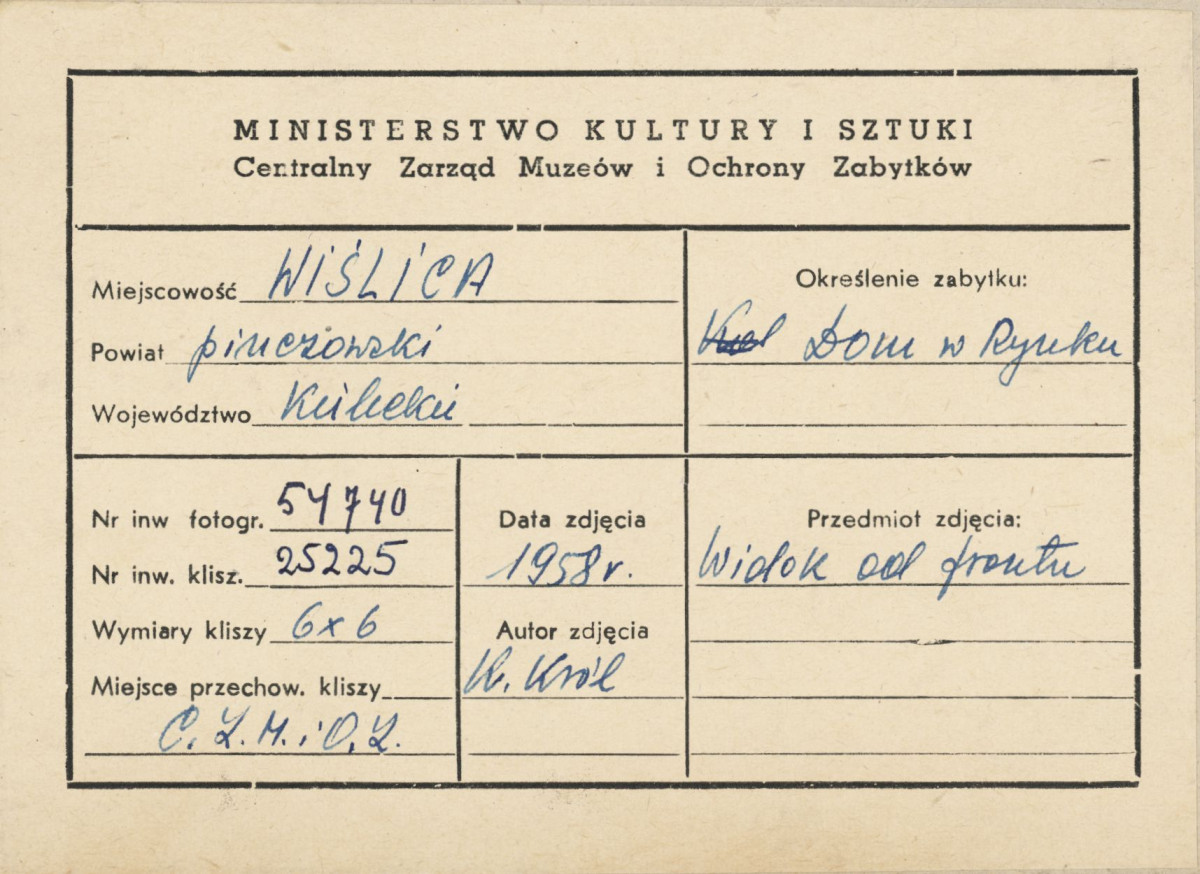 MINISTERSTWO KULTURY I SZTUKI
Centralny Zarząd Muzeów i Ochrony Zabytków
Miejscowość WIŚLICA
Powiat pińczowski
Województwo Kieleckie
Określenie zabytku:
Dom w Rynku
Nr inw fotogr. 54740
Nr inw. klisz. 25225
Wymiary kliszy 6x6
Miejsce przechow. kliszy
C.Z.M. i O.Z.
Data zdjęcia
1958 r.
Autor zdjęcia
K. Król
Przedmiot zdjęcia:
Widok od frontu